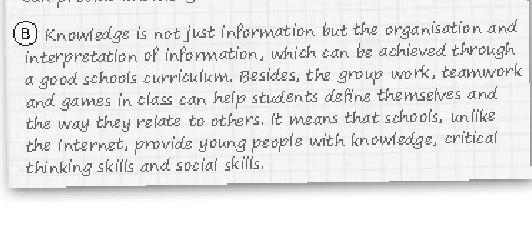 B Knowledge is not just information but the organisation and
interpretation of information, which can be achieved through
a good schools curriculum. Besides, the group work, teamwork
and games in class can help students define themselves and
the way they relate to others. It means that schools, unlike
the Internet, provide young people with knowledge, critical
thinking skills and social skills.